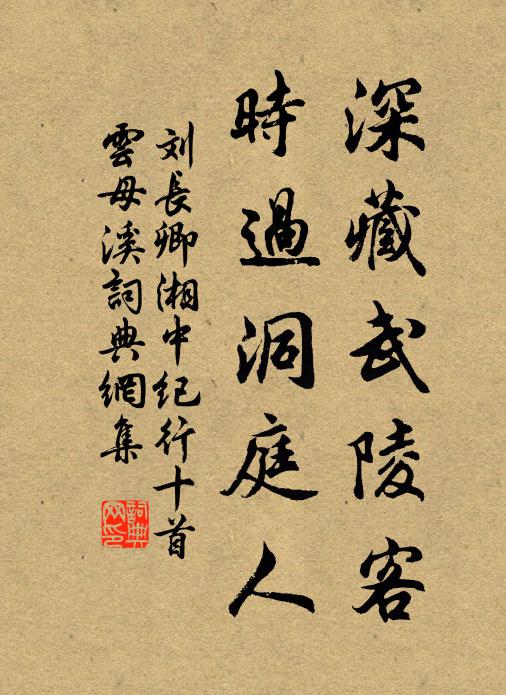 深藏武陵客
時過洞庭人
刘長卿湘中紀行十首
雲母溪詞典網集
詞典
网印